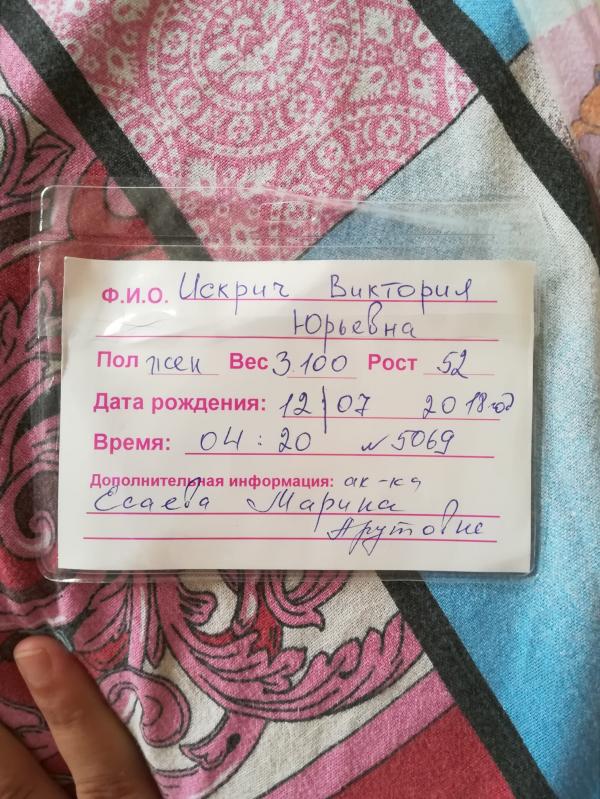 Ф.И.О. Искрич Виктория
Юрьевна
Пол жен Вес 3.100 Рост 52
Дата рождения: 12 | 07 2018 год
Время: 04 : 20 № 5069
Дополнительная информация: ак-ка
Есаева Марина
Арутовна